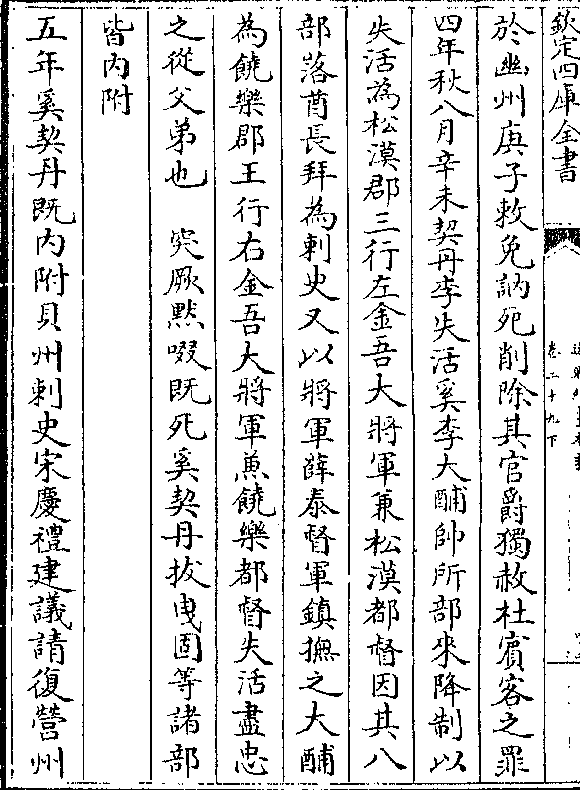 欽定四庫全書
卷二十九下
於幽州庚子敕免訥死削除其官爵獨赦杜賓客之罪
四年秋八月辛未契丹李失活奚李大酺帥所部來降制以
失活為松漠郡三行左金吾大將軍兼松漠都督因其八
部落酋長拜為刺史又以將軍薛泰督軍鎮撫之大酺
為饒樂郡王行右金吾大將軍兼饒樂都督失活盡忠
之從父弟也　突厥黙啜既死奚契丹拔曳固等諸部
皆內附
五年奚契丹既內附貝州刺史宋慶禮建議請復營州